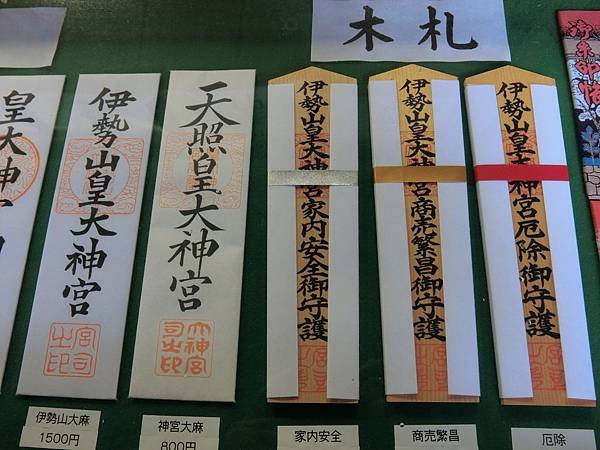 木札
御朱印帳
皇大神
伊勢山皇大神宮
宮司之印
天照皇大神宮
大神宮司之印
伊勢山皇大神宮家内安全御守護
伊勢山皇大神宮商売繁昌御守護
伊勢山皇大神宮厄除御守護
伊勢山大麻
1500円
神宮大麻
800円
家内安全
商売繁昌
厄除